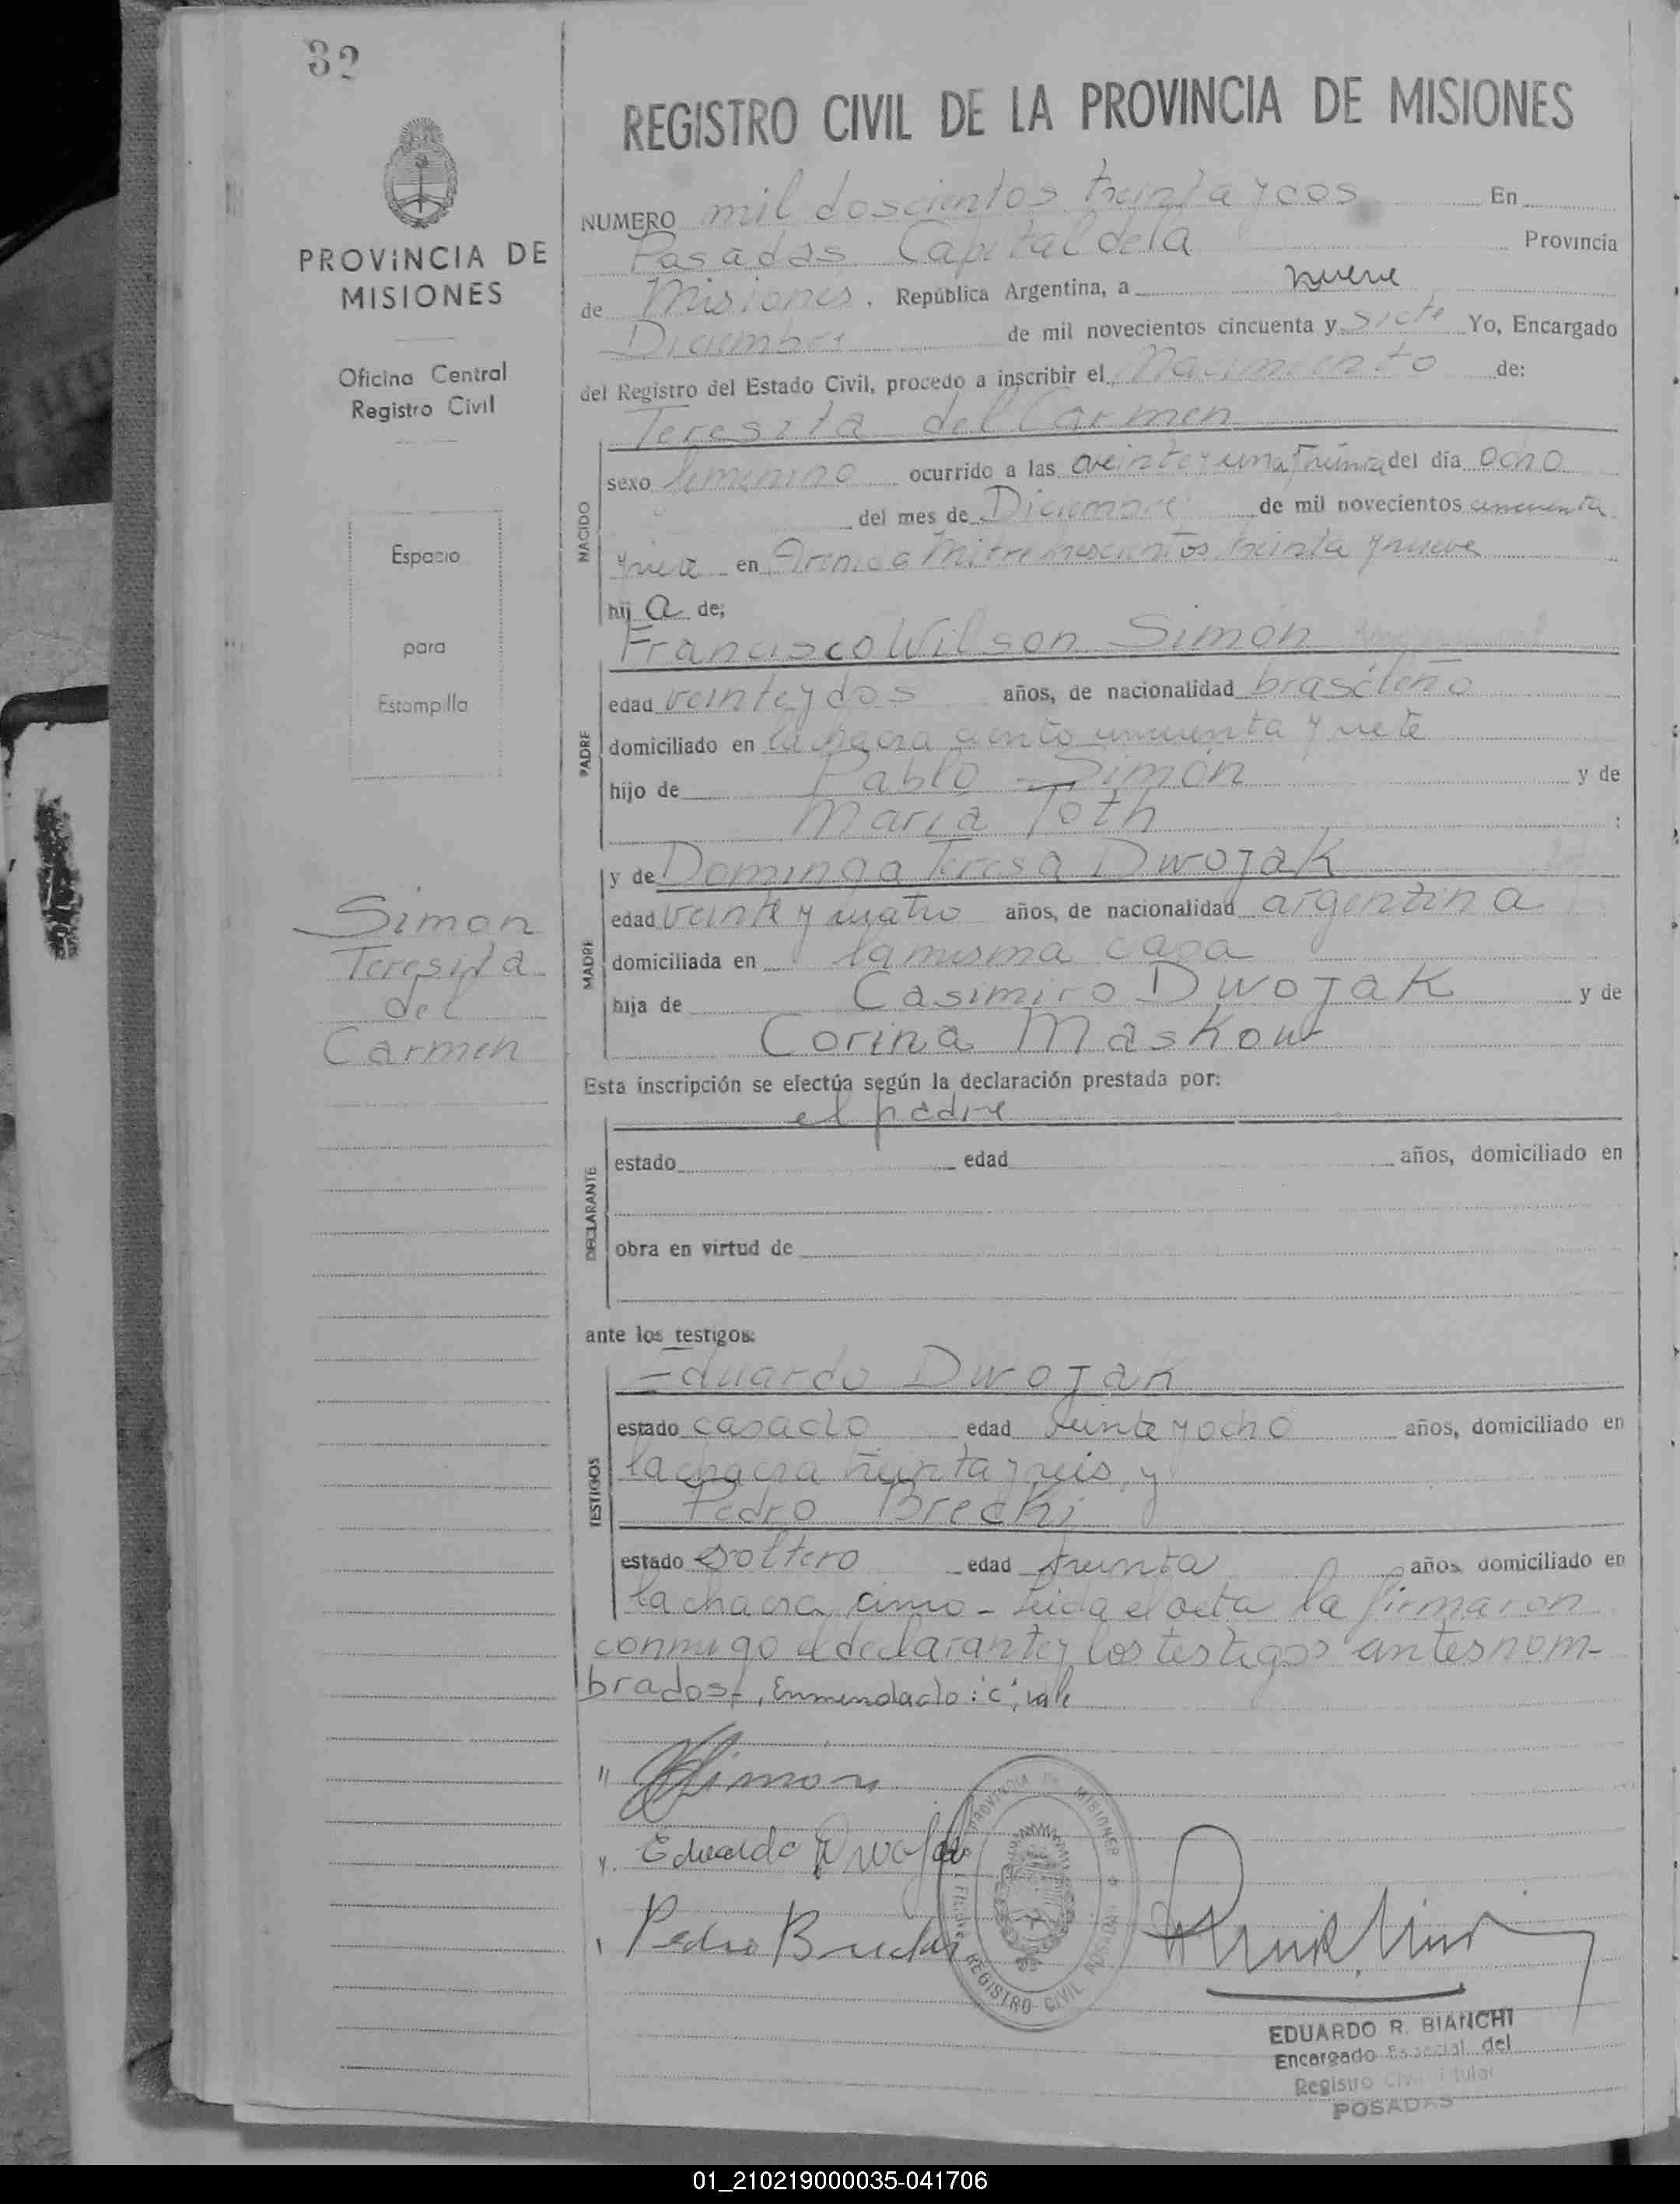 32
REGISTRO CIVIL DE LA PROVINCIA DE MISIONES
PROVINCIA DE
MISIONES
Oficina Central
Registro Civil
Espacio
para
Estampilla
Simon
Teresita
del
Carmen
NUMERO mil doscientos treinta y dos En
Posadas Capital de la Provincia
de Misiones, República Argentina, a nueve
Diciembre de mil novecientos cincuenta y siete Yo, Encargado
del Registro del Estado Civil, procedo a inscribir el Nacimiento de:
Teresita del Carmen
NACIDO
sexo femenino ocurrido a las veinte y una y treinta del día ocho
del mes de Diciembre de mil novecientos cincuenta
y siete en Avenida Mitre trescientos treinta y nueve
hij a de;
Francisco Wilson Simón
PADRE
edad veinte y dos años, de nacionalidad brasileño
domiciliado en la chacra ciento cincuenta y siete
hijo de Pablo Simón y de
Maria Toth :
MADRE
y de Dominga Teresa Dwojak
edad veinte y cuatro años, de nacionalidad argentina
domiciliada en la misma casa
hija de Casimiro Dwojak y de
Corina Maskow
Esta inscripción se efectúa según la declaración prestada por:
el padre
DECLARANTE
estado edad años, domiciliado en
obra en virtud de
ante los testigos:
Eduardo Dwojak
TESTIGOS
estado casado edad veinte y ocho años, domiciliado en
la chacra treinta y seis y
Pedro Brechi
estado soltero edad treinta años domiciliado en
la chacra cinco - Leida el acta la firmaron
conmigo el declarante y los testigos antes nom-
brados-, Enmendado: "c", vale
Simón
Eduardo Dwojak
Pedro
PROVINCIA DE MISIONES
REGISTRO CIVIL POSADAS
EDUARDO R. BIANCHI
Encargado Especial del
Registro Civil Titular
POSADAS
01_210219000035-041706